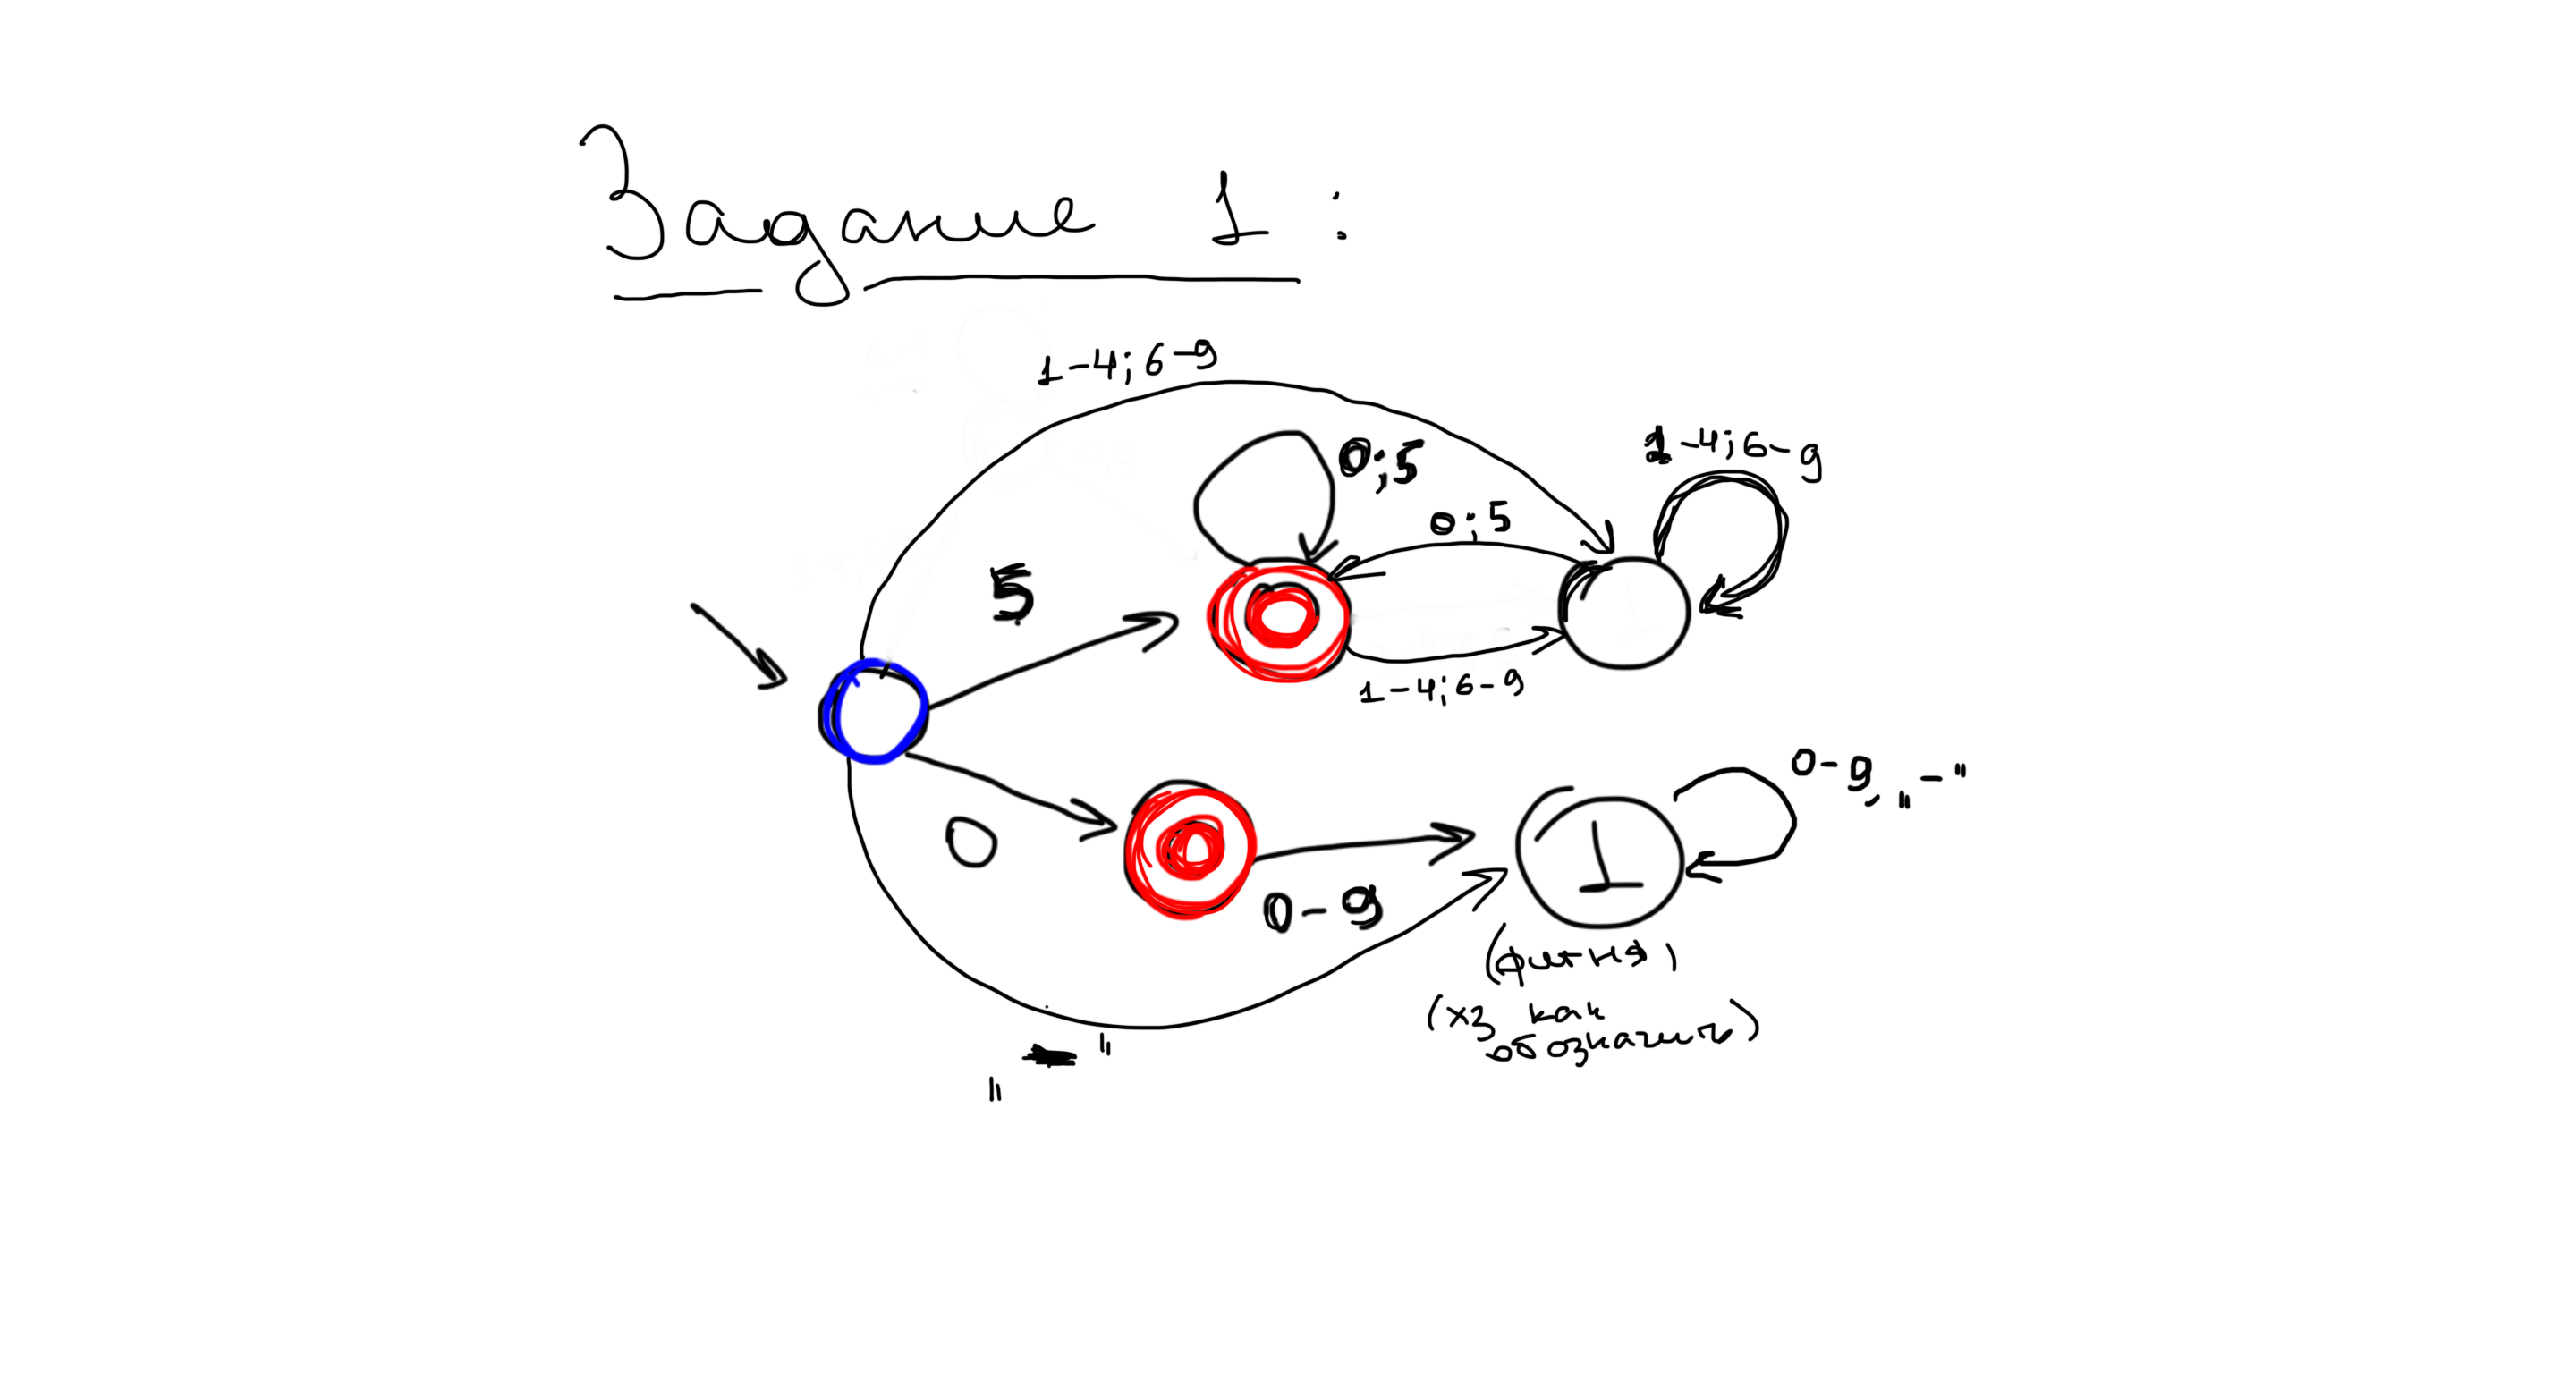 Задание 1:
1-4; 6-9
1-4; 6-9
0;5
0;5
5
1-4; 6-9
0-9, „-"
1
0
0-9
(фигня)
(хз как
обозначить)
„-"